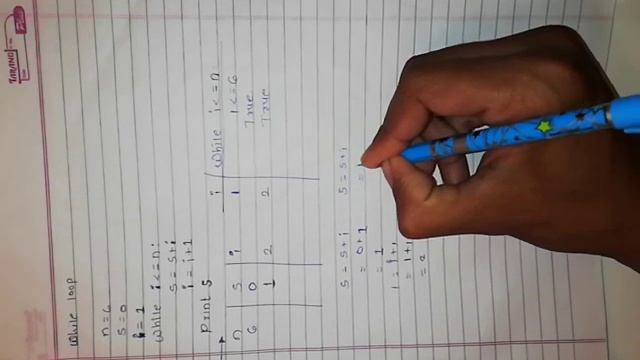 While loop
n=6
s=0
i=1
While i<=n:
s=s+i
i=i+1
Print s
n s i i While i<=n
6 0 1 1<=6
True
1 2 2 True
s=s+i s=s+i
=0+1 =1
=1
i=i+1
=1+1
=2